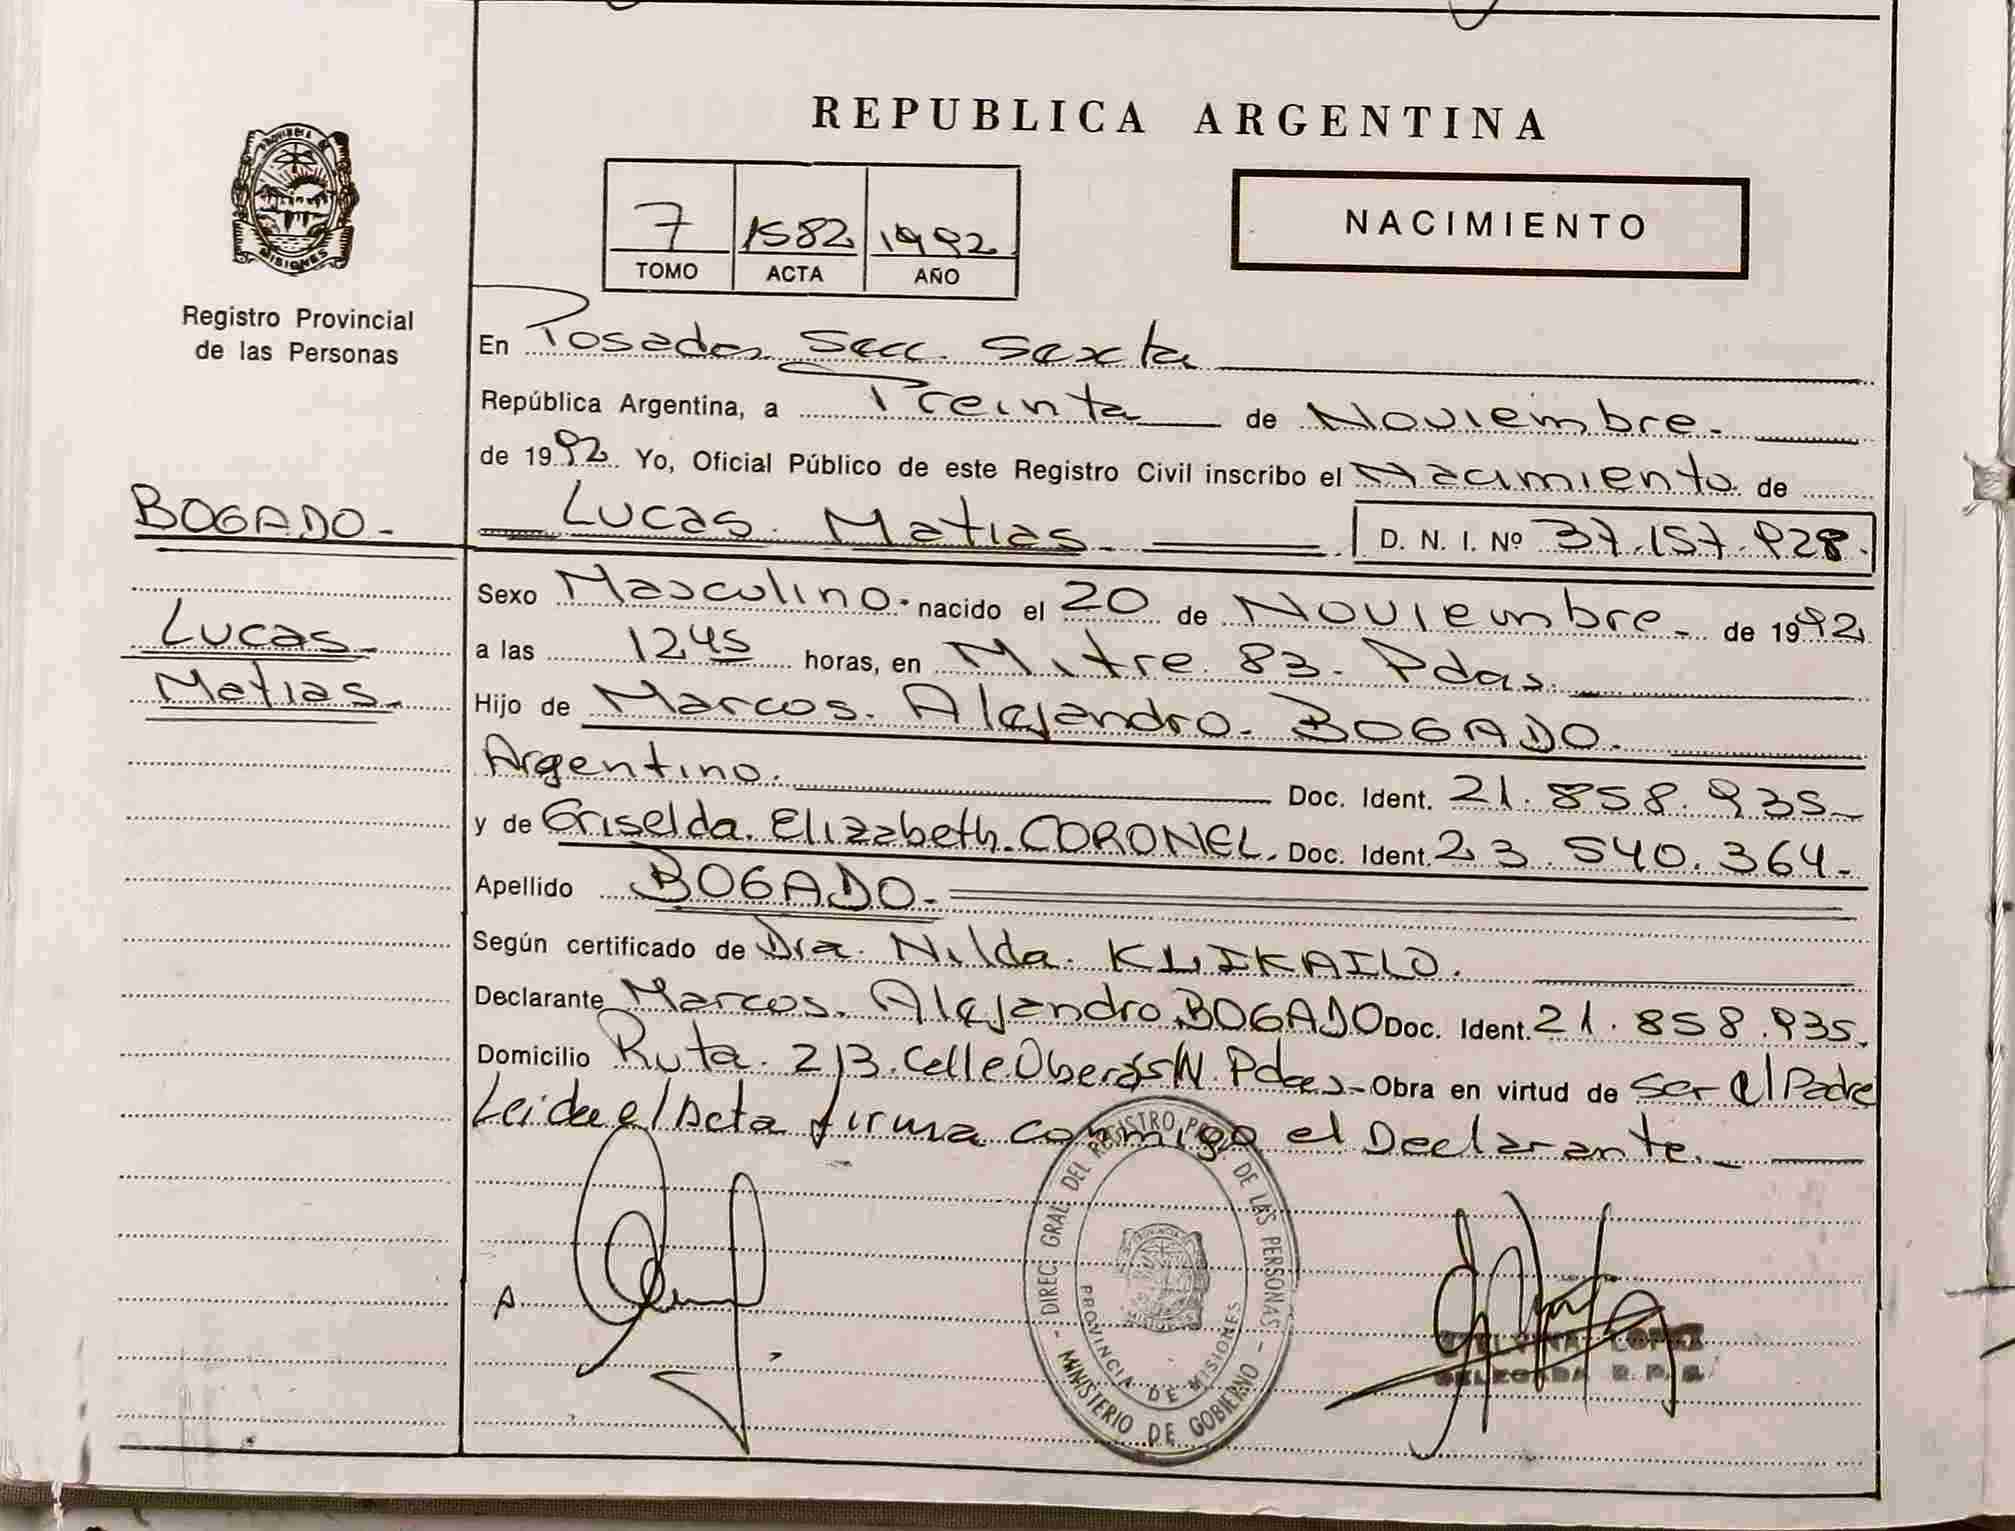 REPUBLICA ARGENTINA
PROVINCIA DE
MISIONES
Registro Provincial
de las Personas
7 1582 1992
TOMO ACTA AÑO
NACIMIENTO
En Posadas Secc. Sexta
República Argentina, a Treinta de Noviembre.
de 1992. Yo, Oficial Público de este Registro Civil inscribo el Nacimiento de
BOGADO-
Lucas Matias. D. N. I. Nº 37.157.928.
Sexo Masculino. nacido el 20 de Noviembre. de 1992
Lucas
a las 1245 horas, en Mitre 83. Pdas.
Matias.
Hijo de Marcos. Alejandro. BOGADO.
Argentino. Doc. Ident. 21.858.935
y de Griselda. Elizabeth. CORONEL. Doc. Ident. 23.540.364.
Apellido BOGADO.
Según certificado de Dra. Nilda. KLIKAILO.
Declarante Marcos. Alejandro BOGADO Doc. Ident. 21.858.935.
Domicilio Ruta. 213. Calle Oberá S/N. Pdas. Obra en virtud de Ser el Padre
Leida el Acta firma conmigo el Declarante.
- DIREC. GRAL. DEL REGISTRO DE LAS PERSONAS -
PROVINCIA DE MISIONES
MINISTERIO DE GOBIERNO
LOPEZ
DELEGADA R. P.